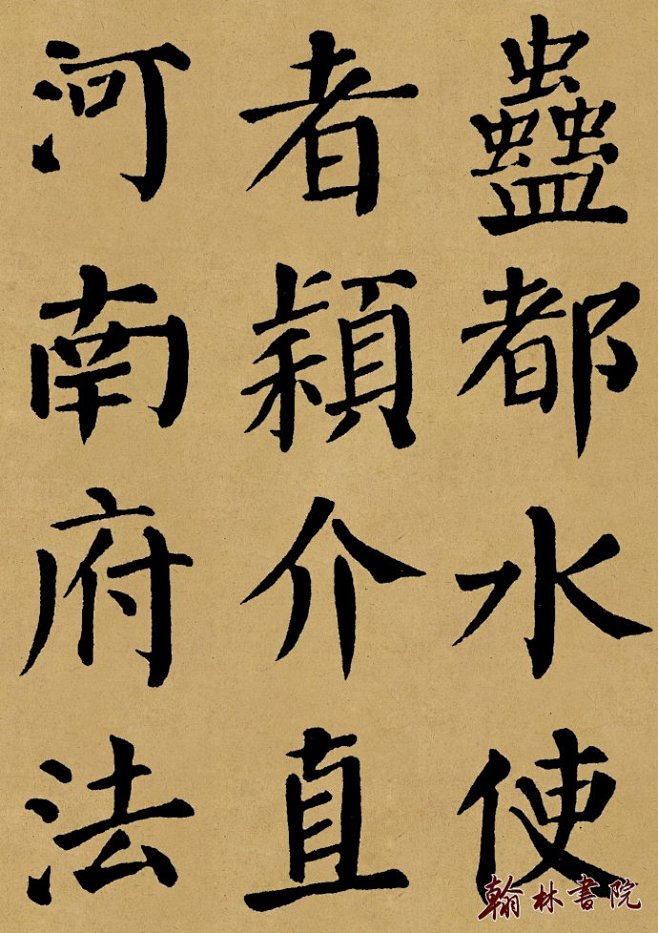 蠱都水使
者頴介直
河南府法
翰林書院